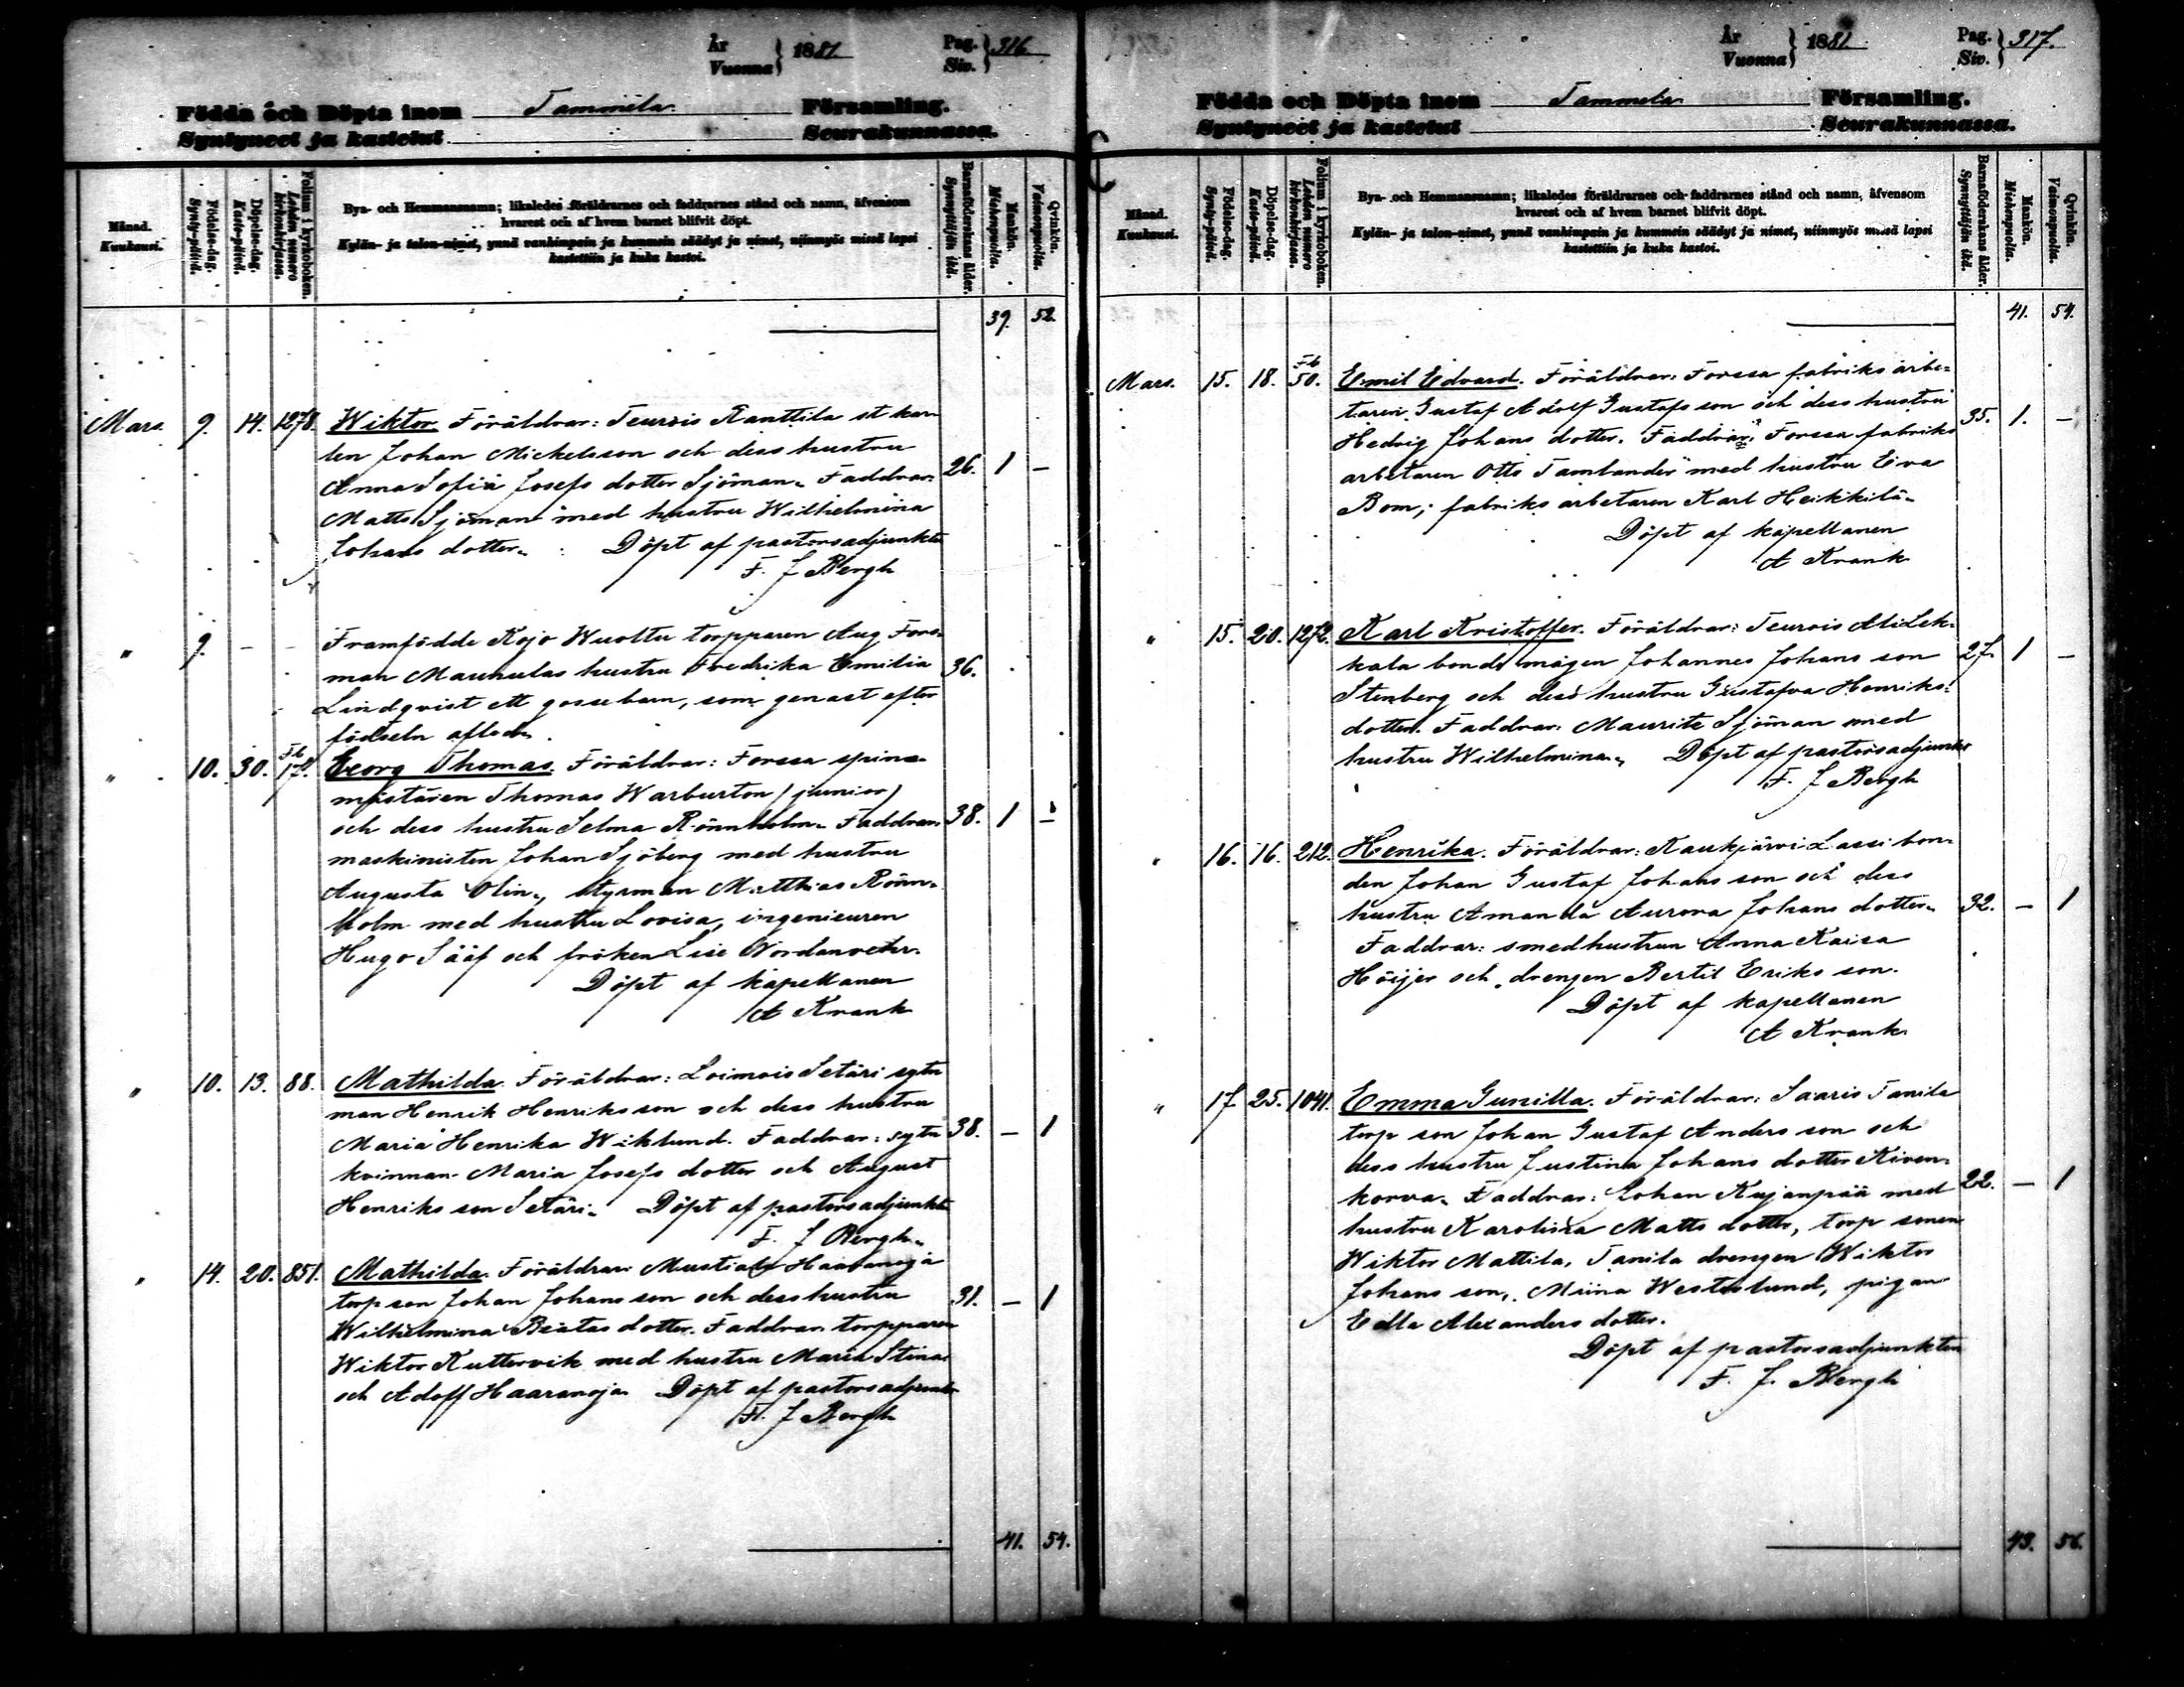 År
Vuonna } 1881. Pag. Siv. } 316
Födda och Döpta inom Tammela Församling.
Syntyneet ja kastetut Seurakunnassa.
Månad. Kuukausi.
Födelse-dag. Synty-päivä.
Döpelse-dag. Kaste-päivä.
Folium i kyrkoboken. Lehden numero kirkonkirjassa.
Bya- och Hemmansnamn; likaledes föräldrarnes och faddrarnes stånd och namn, äfvensom
hvarest och af hvem barnet blifvit döpt.
Kylän- ja talon-nimet, ynnä vanhimpain ja kummein säädyt ja nimet, niinmyös missä lapsi
kastettiin ja kuka kastoi.
Barnaföderskans ålder. Synnyttäjän ikä.
Mankön. Miehenpuolia.
Qvinkön. Vaimonpuolia.
39. 52.
Mars. 9. 14. 1278. Wiktor. Föräldrar: Teurois Ranttila st kar
len Johan Mickelsson och dess hustru
Anna Sofia Josefs dotter Sjöman. Faddrar: 26. 1 –
Matts Sjöman med hustru Wilhelmina
Johans dotter. Döpt af pastorsadjunkten
F. J Bergh
" 9. – – Framfödde Kojo Wuoltu torpparen Aug. Fors-
man Maunulas hustru Fredrika Emilia 36.
Lindqvist ett gossebarn, som genast efter
födseln afled.
" 10. 30. Fb 17. Georg Thomas. Föräldrar: Forssa spinn-
mästaren Thomas Warburton (junior)
och dess hustru Selma Rönnholm. Faddrar: 38. 1 –
maskinisten Johan Sjöberg med hustru
Augusta Olin, styrman Matthias Rönn-
holm med hustru Lovisa, ingenieuren
Hugo Sääf och fröken Lise
Döpt af kapellanen
A Krank
" 10. 13. 88. Mathilda. Föräldrar: Loimois Setäri sytn
man Henrik Henriksson och dess hustru
Maria Henrika Wiklund. Faddrar: sytn 38. – 1
kvinnan Maria Josefs dotter och August
Henriks son Setäri. Döpt af pastorsadjunkten
F. J Bergh.
" 14. 20. 851. Mathilda. Föräldrar: Mustiala Haaranoja
torp son Johan Johans son och dess hustru 31. – 1
Wilhelmina Beatas dotter. Faddrar: torpparen
Wiktor Kuttervik med hustru Maria Stina
och Adolf Haaranoja Döpt af pastorsadjunkten
F. J Bergh
41. 54.
År
Vuonna } 1881. Pag. Siv. } 317.
Födda och Döpta inom Tammela Församling.
Syntyneet ja kastetut Seurakunnassa.
Månad. Kuukausi.
Födelse-dag. Synty-päivä.
Döpelse-dag. Kaste-päivä.
Folium i kyrkoboken. Lehden numero kirkonkirjassa.
Bya- och Hemmansnamn; likaledes föräldrarnes och faddrarnes stånd och namn, äfvensom
hvarest och af hvem barnet blifvit döpt.
Kylän- ja talon-nimet, ynnä vanhimpain ja kummein säädyt ja nimet, niinmyös missä lapsi
kastettiin ja kuka kastoi.
Barnaföderskans ålder. Synnyttäjän ikä.
Mankön. Miehenpuolia.
Qvinkön. Vaimonpuolia.
41. 54.
Mars. 15. 18. Fb 50. Emil Edvard. Föräldrar: Forssa fabriks arbe-
taren Gustaf Adolf Gustafs son och dess hustru 35. 1. –
Hedvig Johans dotter. Faddrar: Forssa fabriks
arbetaren Otto Tamlander med hustru Eva
Bom; fabriks arbetaren Karl Heikkilä.
Döpt af kapellanen
A Krank
" 15. 20. 1272. Karl Kristoffer. Föräldrar: Teurois Ali Lek-
kala bonde mågen Johannes Johans son 27. 1 –
Stenberg och dess hustru Gustafva Henriks-
dotter. Faddrar: Maurits Sjöman med
hustru Wilhelmina. Döpt af pastorsadjunkten
F. J Bergh
" 16. 16. 212. Henrika. Föräldrar: Kaukjärvi Lassi bon-
den Johan Gustaf Johans son och dess
hustru Amanda Aurora Johans dotter. 32. – 1
Faddrar: smedhustrun Anna Kaisa
Höijer och drengen Bertil Eriks son.
Döpt af kapellanen
A Krank.
" 17. 25. 1041. Emma Gunilla. Föräldrar: Saaris Tanila
torp son Johan Gustaf Anders son och
dess hustru Justina Johans dotter Kiven-
korva. Faddrar: Johan Kujanpää med 22. – 1
hustru Karolina Matts dotter, torp sonen
Wiktor Mattila, Tanila drengen Wiktor
Johans son, Miina Westerlund, pigan
Edla Alexanders dotter.
Döpt af pastorsadjunkten
F. J. Bergh
43. 56.